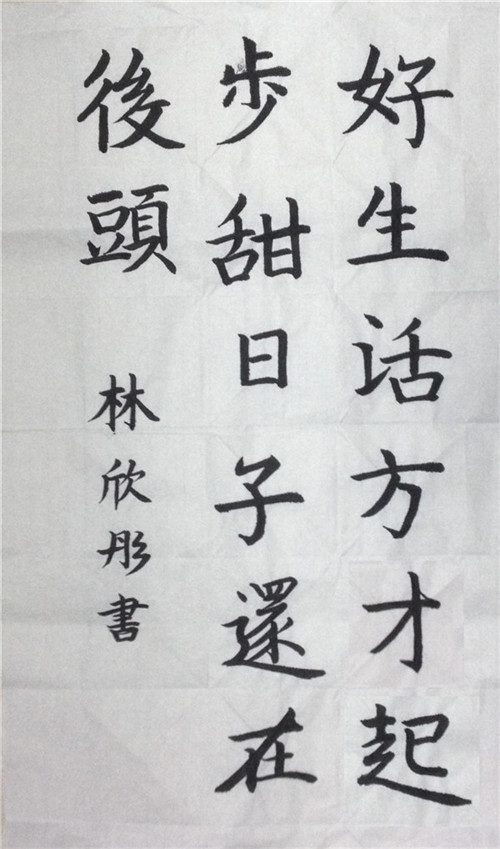 好生活方才起
步甜日子還在
後頭
林欣彤書